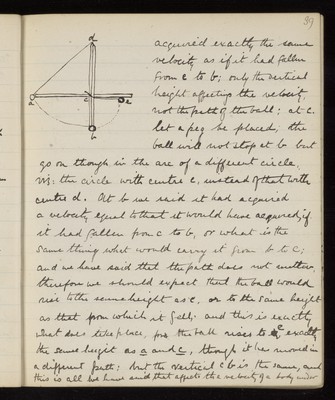 39
d
a c e
b
acquired exactly the same
velocity as if it had fallen
from c to b; only the vertical
height affecting the velocity,
not the path of the ball; at c.
let a peg be placed, the
ball will not stop at b but
go on though in the arc of a different circle,
viz: the circle with centre c, instead of that with
centre d. At b we said it had acquired
a velocity equal to that it would have acquired, if
it had fallen from c to b, or what is the
same thing what would carry it from b to c;
and we have said that the path does not matter,
therefore we should expect that the ball would
rise to the same height as c, or to the same height
as that from which it fell; and this is exactly
what does take place, for the ball rises to e exactly
the same height as a and c, though it has moved in
a different path: but the vertical c b is the same, and
this is all we have said that affects the velocity of a body under